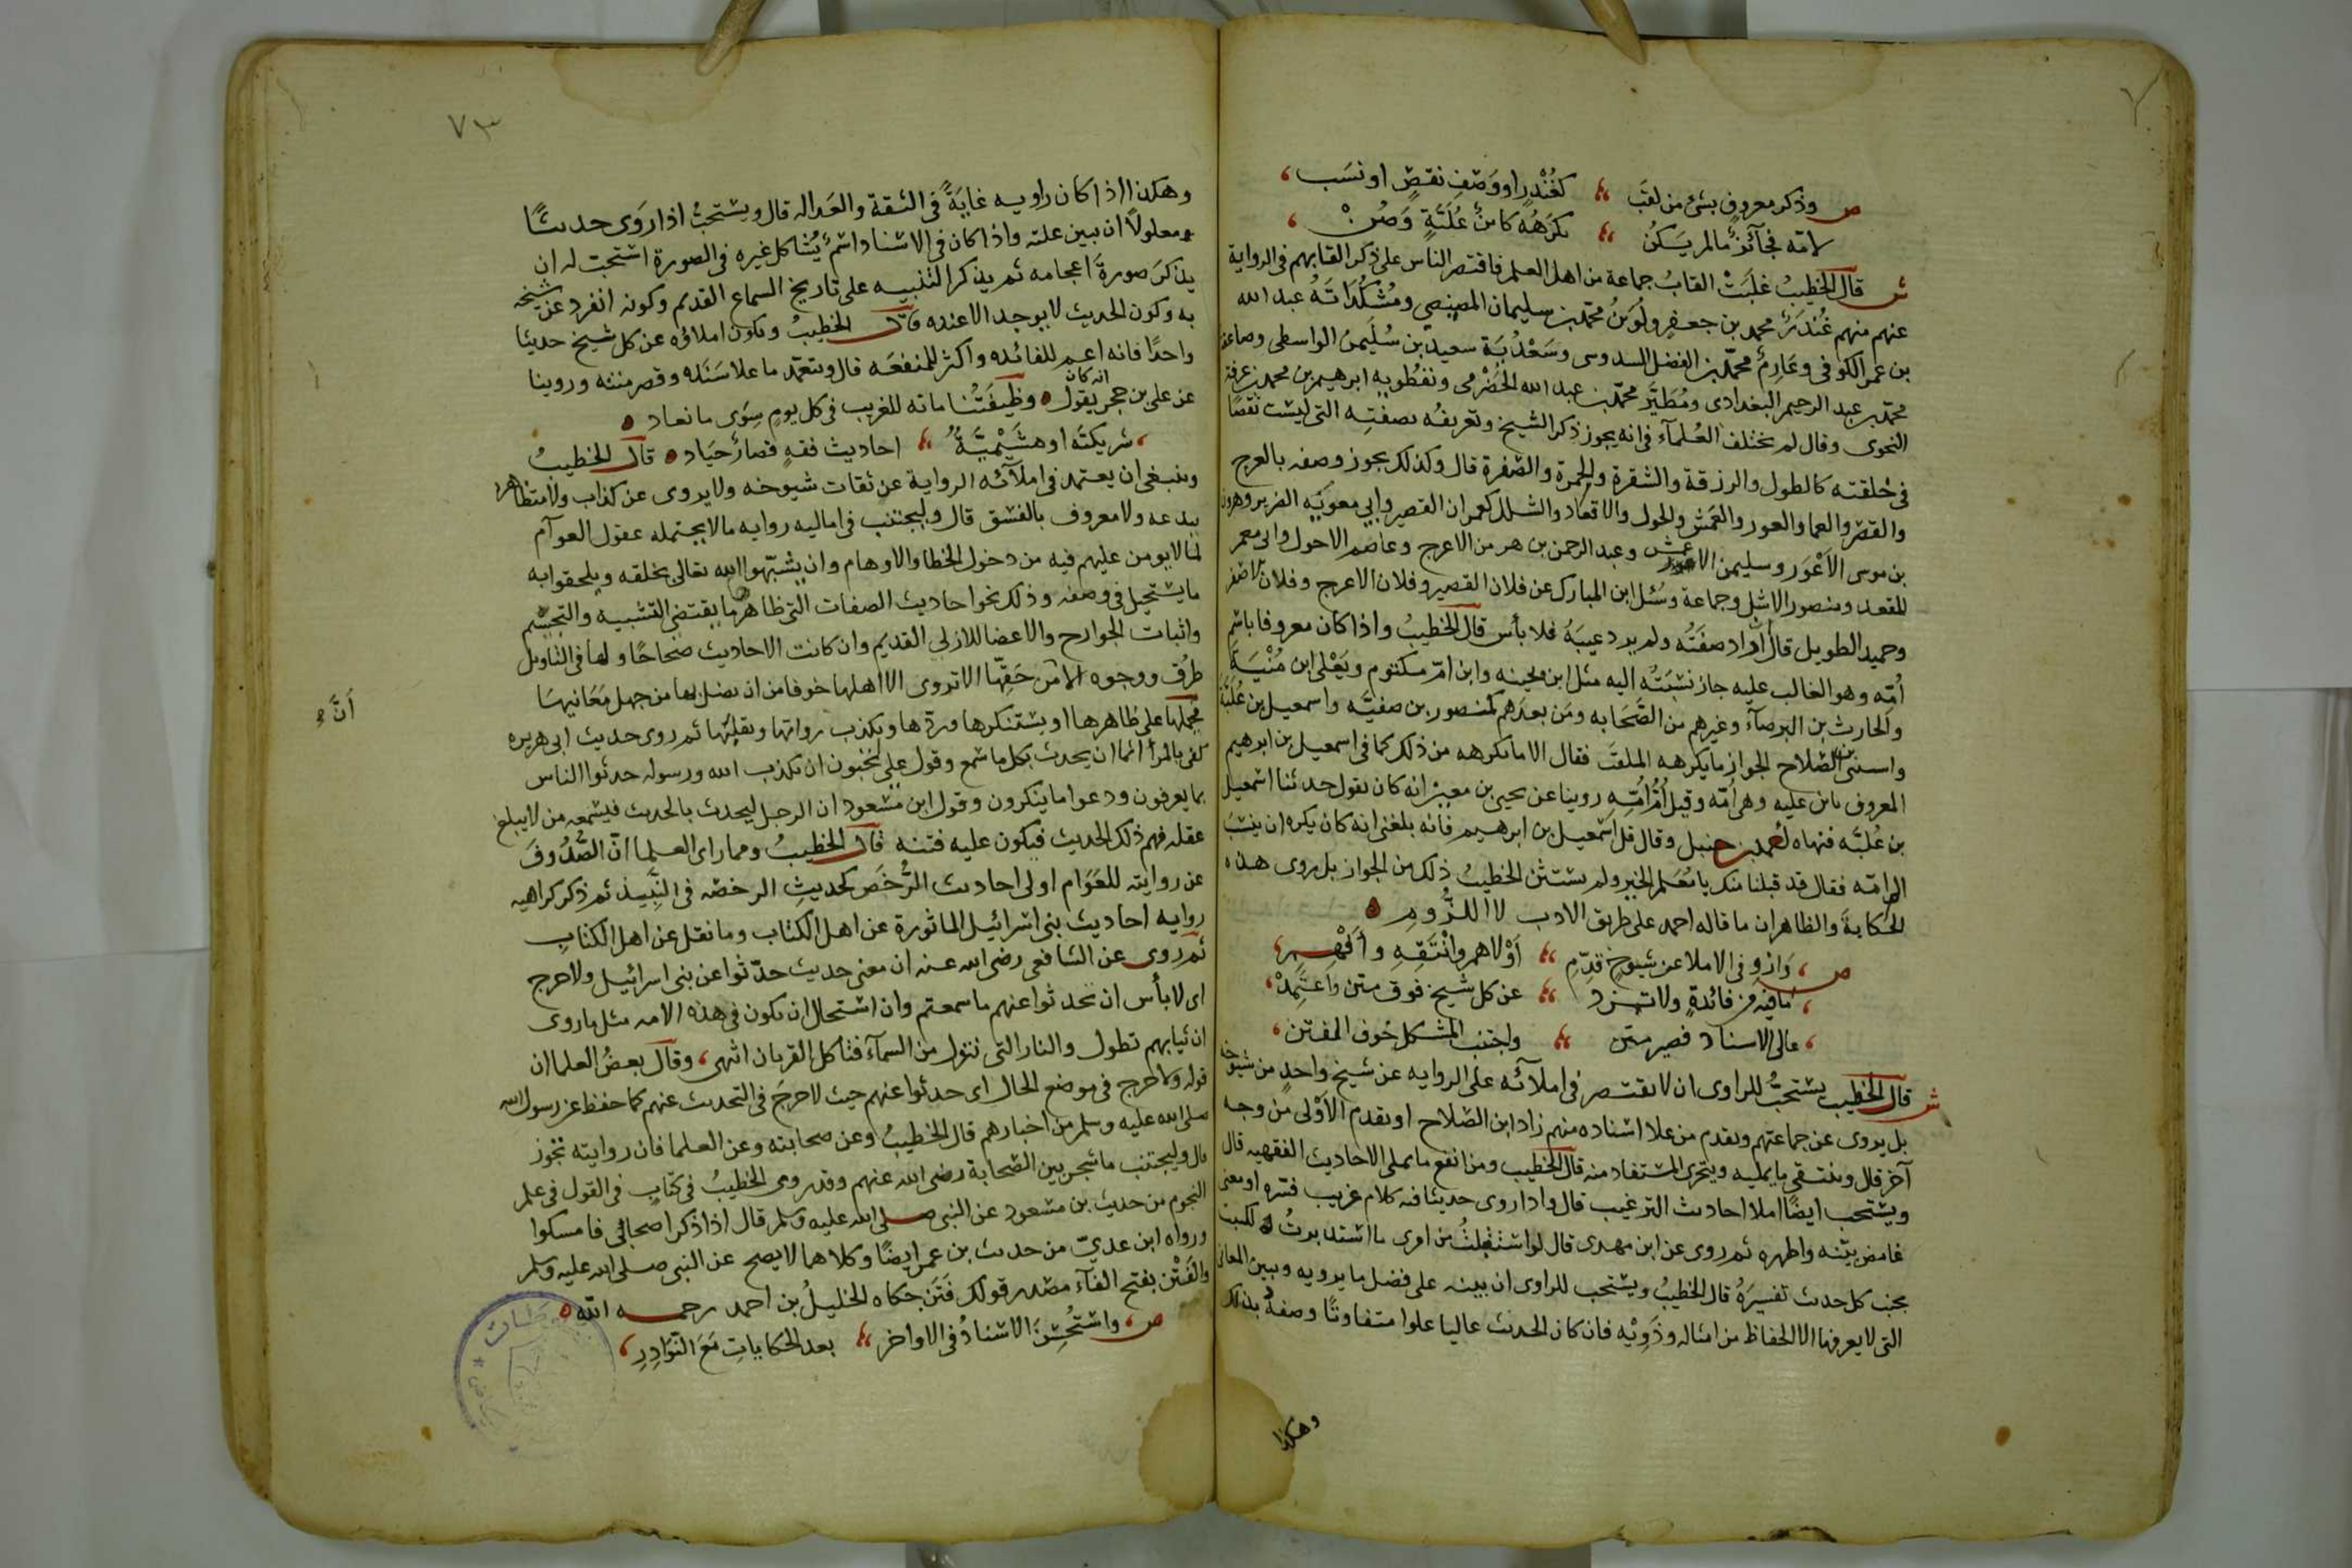 ص وذكر معروف بشئ من لقب كغُنْدَرٍ او وَصْفِ نقصٍ او نسَب
لامّه فجآئزٌ ما لم يَكُن يكرَهُه كابنُ عُلَيَّةٍ وَصُنْ
ش قال الخطيبُ غلبَتْ القابُ جماعة من اهل العلم فاقتصر الناس على ذكر القابهم فى الرواية
عنهم منهم غُنْدَرٌ محمد بن جعفر ولُوَيْنُ محمّد بن سليمان المصيصى ومُشْكُدَانَةُ عبد الله
بن عمر الكوفى وعَارِمٌ محمّد بن الفضل السدوسى وسَعْدُبَة سعيد بن سُلَيمن الواسطى وصاعقة
محمّد بن عبد الرحيم البغدادى ومُطيَّن محمّد بن عبد الله الحَضْرمى ونفطُويه ابرهيم بن محمد بن عرفة
النحوى وقال لم يختلف العُلمآء فى انه يجوز ذكر الشيخ وتعريفُه بصفتِه التى ليست نقصًا
فى خلقته كالطول والزرقة والشقرة والحمرة والصّفرة قال وكذلك يجوز وصفه بالعرج
والقصر والعما والعور والعَمش والحول والاقعاد والشلل كعمران القصير وابى معويَه الضرير وهرون
بن موسى الاَعْوَر وسليمن الاعمش وعبد الرحمن بن هرمز الاعرج وعاصم الاحول وابى معمر
المقعد ومنصور الاشل وجماعة وسُئل ابن المبارك عن فلان القصير وفلان الاعرج وفلان الاصفر
وحميد الطويل قال اذا اراد صفَتُه ولم يرد عيبَهُ فلا بأس قال الخطيبُ واذا كان معروفا باسْمِ
اُمّه وهو الغالب عليه جاز نسْبَتُه اليه مثل ابن بحينه وابن امّ مكتوم ويَعْلى ابن مُنْيَة
والحارث بن البرصآء وغيرهم من الصّحَابه ومَن بعدَهم كمنصور بن صفيَّه واسمعيل بن عُليَّة
واستثنى بن الصّلاح الجواز ما يكرهه الملقَّب فقال الا ما يكرهه من ذلك كما فى اسمعيل بن ابرهيم
المعروف بابن عليه وهى اُمّه وقيل اُمُّ اُمّه روينا عن يحيى بن معين انه كان يقول حدثنا اسمعيل
بن عُليَّه فنهاه احمد بن حنبل وقال قل اسْمعيل بن ابرهيم فانه بلغنى انه كان يكره ان ينسَبَ
الى امّه فقال قد قبلنا منك يا مُعَلم الخير ولم يستثن الخطيبُ ذلك من الجواز بل روى هذه
الحكايةَ والظاهر ان ما قاله احمد على طريق الادب لا اللزُّومِ
ص وَارْوِ فى الاملا عن شيوخٍ قدِّمِ اَوْلاهم وانْتَقِهِ وأَفهم
ما فيه مِن فائدةٍ ولا تزد عن كل شيخ فوق متن واعتَمِدْ
عالى الاسناد قصير متن واجتنب المشكل خوف المفتن
ش قال الخطيب يستحبُّ للراوى ان لا يقتصر فى املآئه على الروايه عن شيخ واحدٍ من شيوخه
بل يروى عن جماعتهم ويقدم من علا اسناده منهم زاد ابن الصّلاح او يقدم الاَوْلى من وجه
آخر قال وينتقى ما يمليه ويتحرى المستفاد منه قال الخطيب ومن انفع ما يملى الاحاديث الفقهيه قال
ويستحب ايضًا املا احاديث الترغيب قال واذا روى حديثا فيه كلام غريب فسّره او معنى
غامض بيّنه واظهره ثم روى عن ابن مهدى قال لو استقبلتُ من امرى ما استدبرتُ لكتبت
بجنب كل حديث تفسيرَهُ قال الخطيبُ ويستحب للراوى ان يبيّنه على فضل ما يرويه ويبين المعانى
التى لا يعرفها الا الحفاظ من امثاله وذَوِيْه فان كان الحديث عاليا علوا متفاوتًا وصفَهُ بذلك
وهكذا
٧٣
وهكذا اذا كان راويه غايَةً فى الثقة والعَداله قال ويستحبُّ اذا روَى حديثًا
معلولًا ان يبين علته واذا كان فى الاسناد اسْمٌ يُشاكل غيره فى الصورة استحبت له ان
يذكرَ صورةَ اعجامه ثم يذكر التنبيه على تاريخ السماع القديم وكونه انفرد عن شيخه
به وكون الحديث لا يوجد الا عنده قال الخطيبُ ويكون املاؤه عن كل شيخ حديثا
واحدًا فانه اعم للفائده واكثر للمنفعَه قال ويتعمّد ما علا سَنَده وقصر متنه وروينا
عن على بن حجر انه كان يقول وظيفَتُنا مائه للغريب فى كل يومٍ سِوَى ما نعاد
شريكيَّه او هُشَيْميَّةٌ احاديث فقهٍ قصارٌ جِيَاد قال الخطيبُ
وينبغى ان يعتمد فى املآئه الرواية عن ثقات شيوخه ولا يروى عن كذاب ولا متظاهر
ببدعه ولا معروف بالفسْق قال وليجتنب فى اماليه روايه ما لا يحتمله عقول العوآم
لما لا يومن عليهم فيه من دخول الخطا والاوهام وان يشبّهوا الله تعالى بخلقه ويلحقوا به
ما يستحيل فى وصفه وذلك نحو احاديث الصفات التى ظاهرها يقتضى التشبيه والتجسّم
واثبات الجوارح والاعضا للازلى القديم وان كانت الاحاديث صحاحًا ولها فى التاويل
طرُق ووجوه الا اَنّ من حَقِّها الا تروى الا اهلها خوفا من ان يضل بها من جهل مَعَانيهَا
اَنَّ
فيحملها على ظاهرها او يستنكرها فيردّها ويكذب رواتها ونقلتَها ثم روى حديث ابى هريره
كفى بالمرأ اثما ان يحدث بكل ما سَمع وقول على تُحبّون ان يكذب الله ورسوله حدثوا الناس
بما يعرفون ودعوا ما ينكرون وقول ابن مسْعود ان الرجل ليحدث بالحديث فيسْمعه من لا يبلغ
عقله فهم ذلك الحديث فيكون عليه فتنه قال الخطيبُ ومما راى العلما انّ الصُّدُوفَ
عن روايته للعَوَام اولى احاديث الرُّخَص كحديثِ الرخصَه فى النَّبِيذ ثم ذكر كراهيه
روايه احاديث بنى اسْرائيل الماثورة عن اهل الكتاب وما نقل عن اهل الكتابِ
ثم روى عن الشافعى رضى الله عنه ان معنى حديث حدّثوا عن بنى اسرائيل ولا حرج
اى لا بأس ان تحدثوا عنهم ما سمعتم وان استحال ان يكون فى هذه الامه مثل ما روى
ان ثيابهم تطول والنار التى تنزل من السمآء فتاكل القربان انتهى وقال بعضُ العلما ان
قوله ولا حرج فى موضع الحال اى حدثوا عنهم حيث لا حرجَ فى التحديث عنهم كما حفظ عن رسول الله
صلى الله عليه وسلم من اخبارهم قال الخطيبُ وعن صحابته وعن العلما فان روايته تجوز
قال وليجتنب ما شجر بين الصّحابة رضى الله عنهم وقد روى الخطيبُ فى كتابٍ فى القول فى علم
النجوم من حديث بن مسْعود عن النبى صلى الله عليه وسلم قال اذا ذكر اصحابى فامسكوا
ورواه ابن عدىّ من حديث بن عمر ايضًا وكلاهما لا يصح عن النبى صلى الله عليه وسلم
والفَتْن بفتح الفآء مصْدر قولك فَتَن حكاه الخليلُ بن احمد رحمه الله
ص واستُحْسِنَ الاسْنادُ فى الاواخر بعد الحكاياتِ مَعَ النَّوَادِرِ